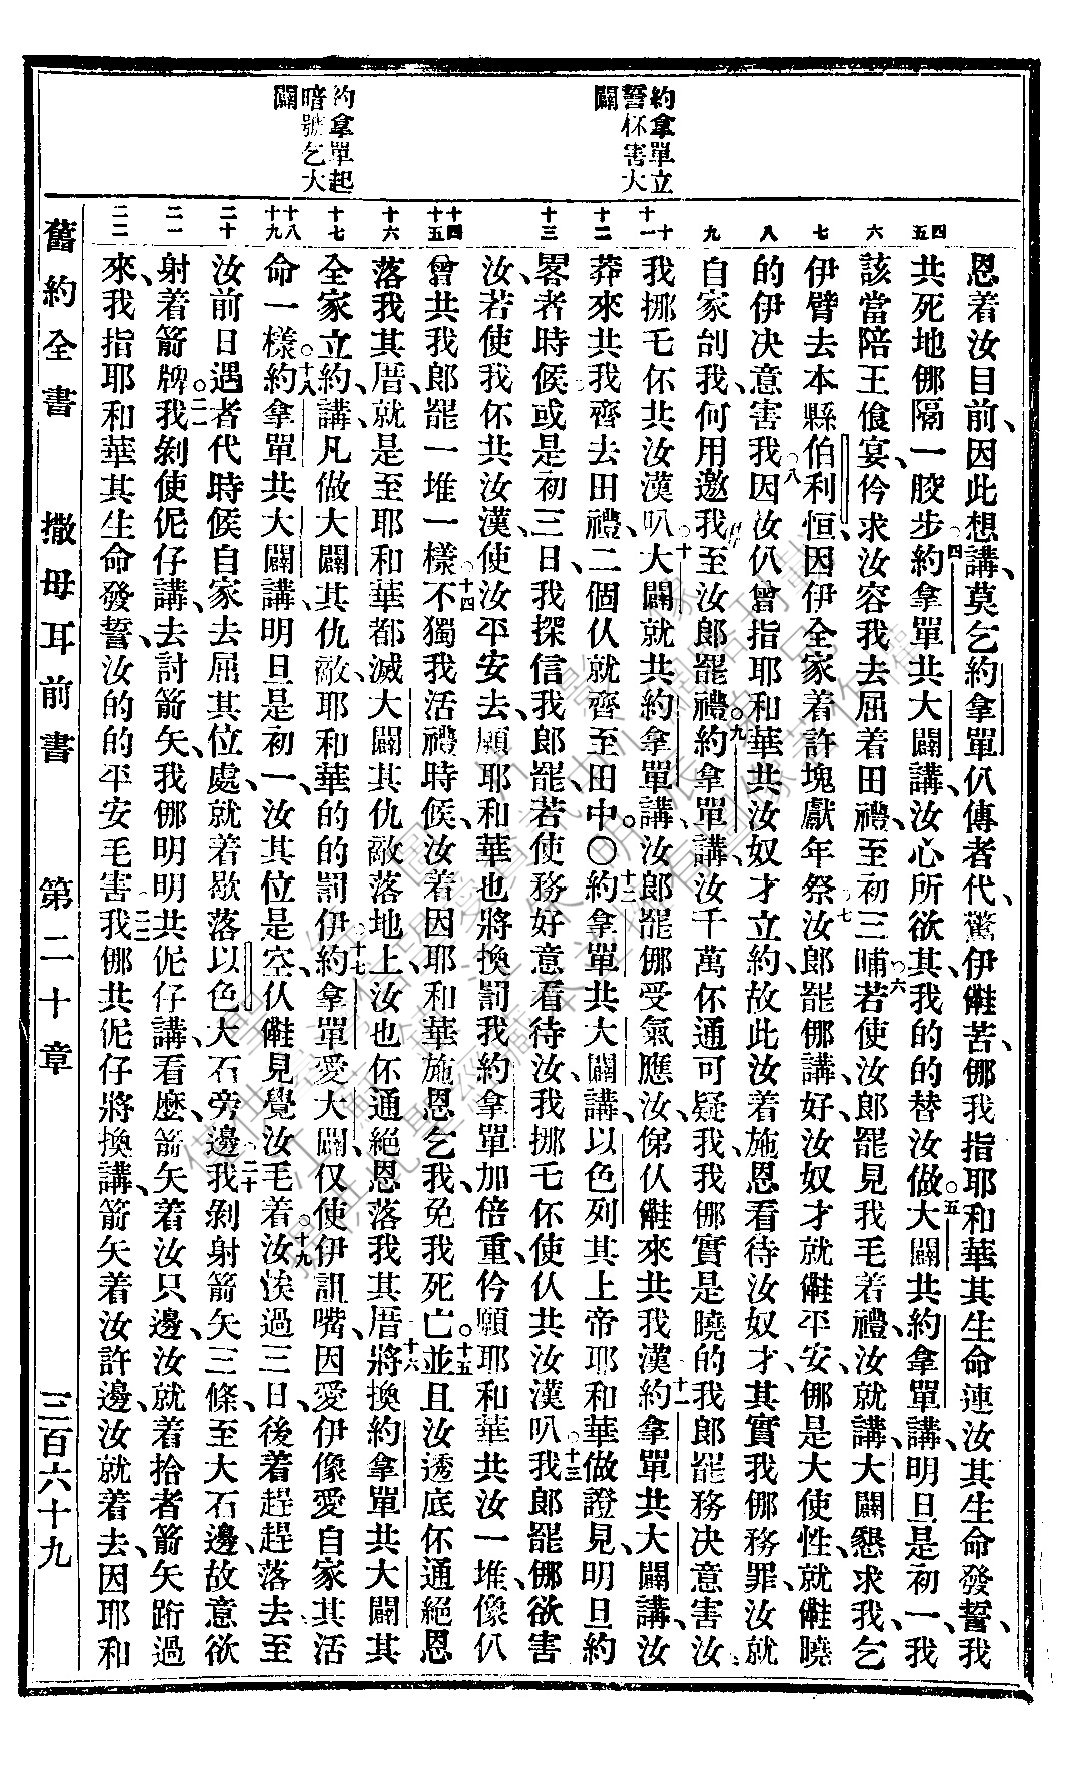 約拿單立
誓怀害大
闢
約拿單起
暗號乞大
闢
四
五
六
七
八
九
十
十一
十二
十三
十四
十五
十六
十七
十八
十九
二十
二一
二二
恩着汝目前、因此想講、莫乞約拿單仈傳者代、驚伊㑚苦、㑚我指耶和華其生命連汝其生命發誓、我
共死地㑚隔一骹步○四約拿單共大闢講、汝心所欲其、我的的替汝做○五大闢共約拿單講、明旦是初一、我
該當陪王食宴、仱求汝容我去屈着田禮、至初三晡○六若使汝郎罷見我毛着禮、汝就講、大闢懇求我、乞
伊臂去本縣伯利恒、因伊全家着許塊獻年祭○七汝郎罷㑚講好、汝奴才就㑚平安、㑚是大使性、就㑚曉
的伊決意害我○八因汝仈曾指耶和華共汝奴才立約、故此汝着施恩看待汝奴才、其實我㑚務罪、汝就
自家刣我、何用邀我至汝郎罷禮○九約拿單講、汝千萬怀通可疑我、我㑚實是曉的我郎罷務決意害汝
我挪乇怀共汝漢叭○十大闢就共約拿單講、汝郎罷㑚受氣應汝、俤仈㑚來共我漢○十一約拿單共大闢講、汝
莽來共我齊去田禮、二個仈就齊至田中○約拿單共大闢講、以色列其上帝耶和華做證見、明旦約
畧者時候、或是初三日、我探信我郎罷、若使務好意看待汝、我挪乇怀使仈共汝漢叭○十三我郎罷㑚欲害
汝、若使我怀共汝漢、使汝平安去、願耶和華也將換罰我約拿單加倍重、仱願耶和華共汝一堆、像仈
曾共我郎罷一堆一樣○十四不獨我活禮時候、汝着因耶和華施恩乞我、免我死亡○十五並且汝透底怀通絕恩
落我其厝、就是至耶和華都滅大闢其仇敵落地上、汝也怀通絕恩落我其厝○十六將換約拿單共大闢其
全家立約、講、凡做大闢其仇敵、耶和華的的罰伊○十七約拿單愛大闢、仅使伊詛嘴、因愛伊像愛自家其活
命一樣○十八約拿單共大闢講、明旦是初一、汝其位是空、仈㑚見覺汝毛着○十九汝俟過三日、後着趕趕落去、至
汝前日遇者代時候自家去屈其位處、就着歇落以色大石旁邊○二十我剝射箭矢三條、至大石邊、故意欲
射着箭牌○二一我剝使伲仔講、去討箭矢、我㑚明明共伲仔講、看麽、箭矢着汝只邊、汝就着拾者箭矢跸過
來、我指耶和華其生命發誓、汝的的平安毛害○二二我㑚共伲仔將換講、箭矢着汝許邊、汝就着去、因耶和
舊約全書 撒母耳前書 第二十章 三百六十九